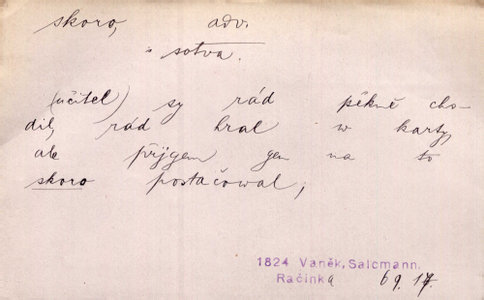 skoro, adv.
sotva.
(učitel) sy rád pěkně cho-
dil, rád hral w karty,
ale přjgem gen na to
skoro postačowal;
1824 Vaněk, Salcmann.
Račinka 69. 17.